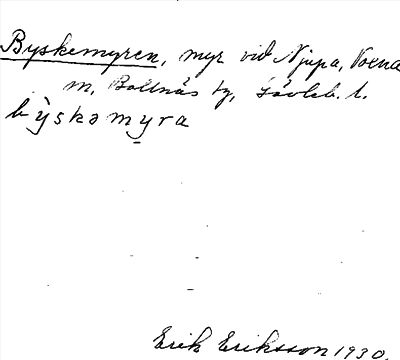 Byskemyren, myr vid Njupa, Voxna
m, Bollnäs tg, Gävleb. l.
bỳskəmyra
Erik Eriksson 1930.